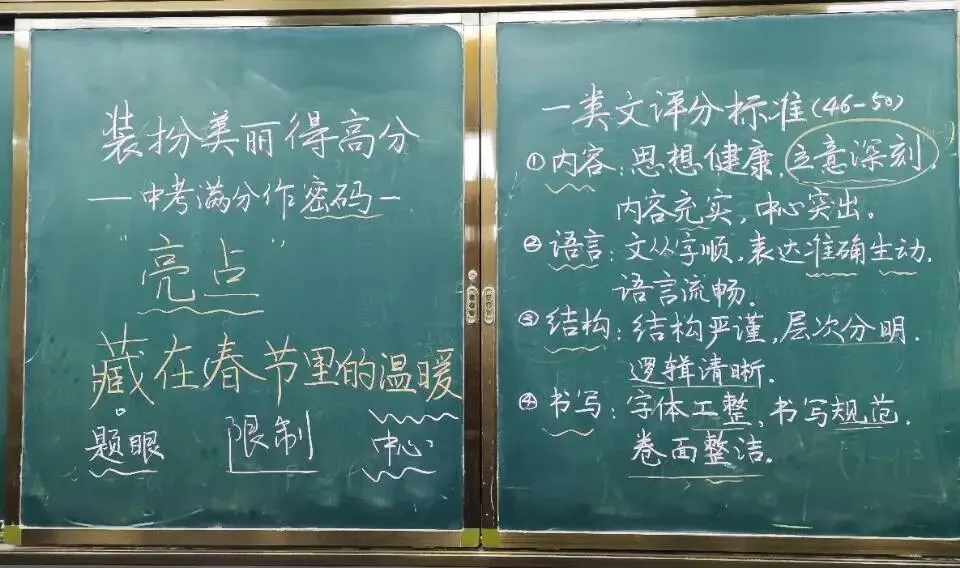 装扮美丽得高分
—中考满分作密码—
"亮点"
藏在春节里的温暖
题眼 限制 中心
一类文评分标准(46-50)
①内容：思想健康，立意深刻，
内容充实，中心突出。
②语言：文从字顺，表达准确生动，
语言流畅。
③结构：结构严谨，层次分明，
逻辑清晰。
④书写：字体工整，书写规范，
卷面整洁。